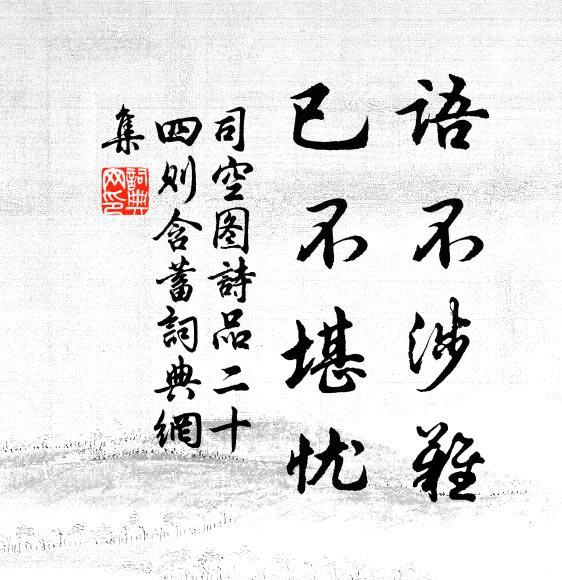 语不涉难
已不堪忧
司空图詩品二十
四则含蓄詞典網
集
詞典
网印